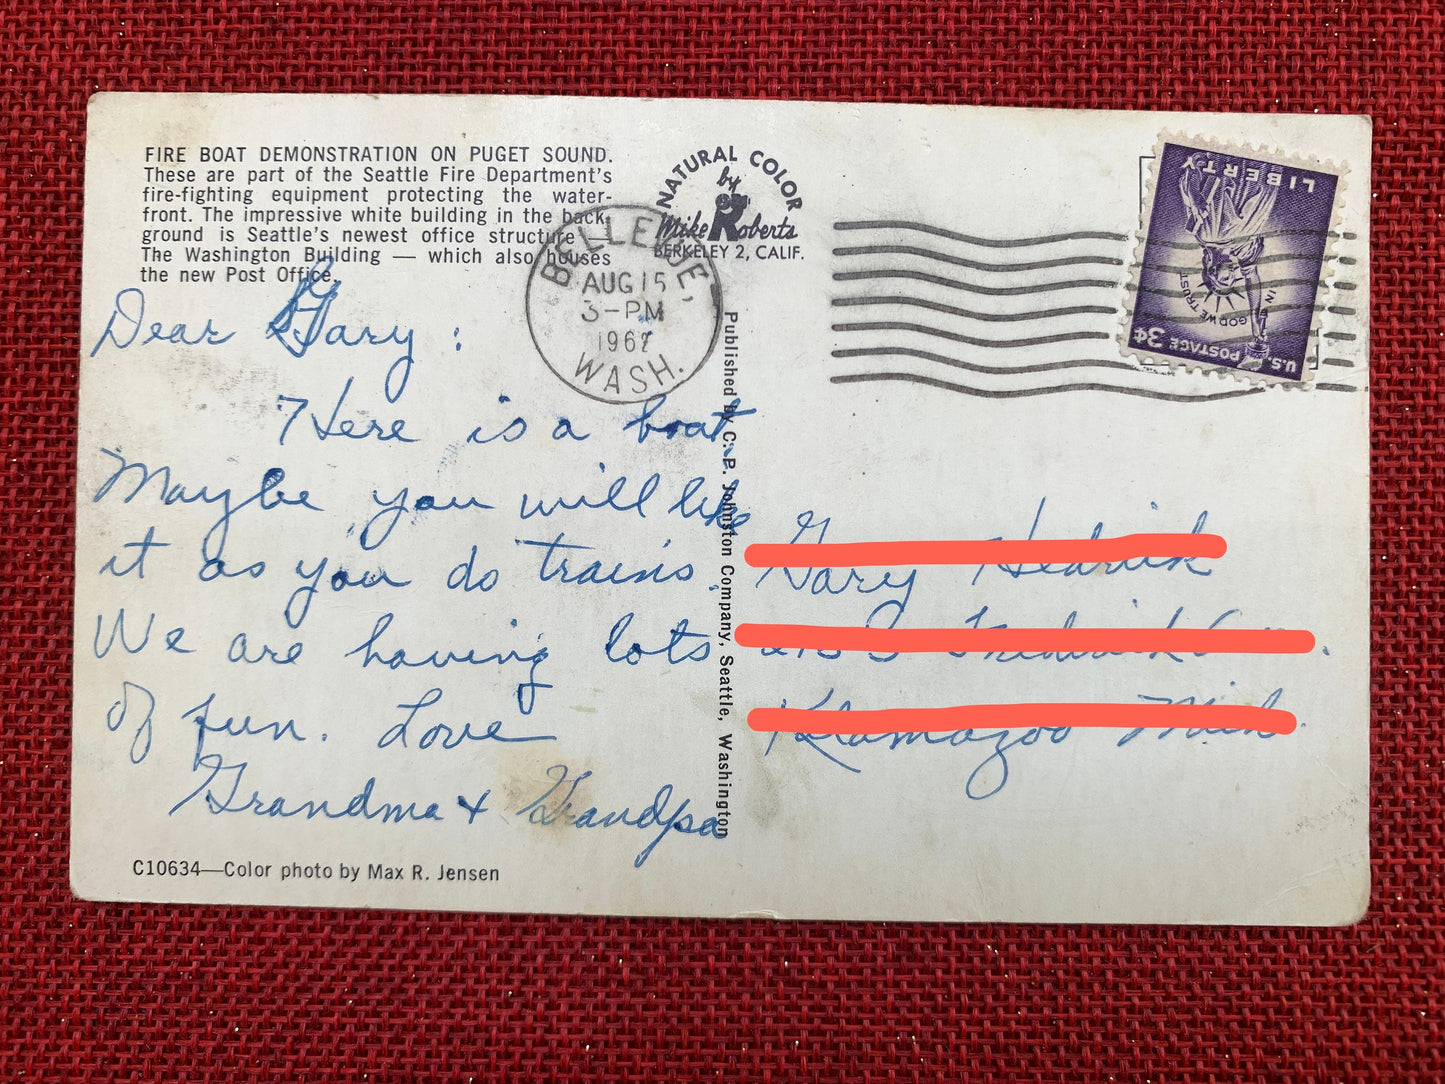 FIRE BOAT DEMONSTRATION ON PUGET SOUND.
These are part of the Seattle Fire Department's
fire-fighting equipment protecting the water-
front. The impressive white building in the back-
ground is Seattle's newest office structure
The Washington Building — which also houses
the new Post Office.
Dear Gary :
Here is a boat.
Maybe you will like
it as you do trains.
We are having lots
of fun. Love
Grandma + Grandpa
C10634—Color photo by Max R. Jensen
NATURAL COLOR
by
Mike Roberts
BERKELEY 2, CALIF.
BELLEVUE,
AUG 15
3-PM
WASH.
Published by C. P. Johnston Company, Seattle, Washington
LIBERTY
IN GOD WE TRUST
U.S. POSTAGE 3¢